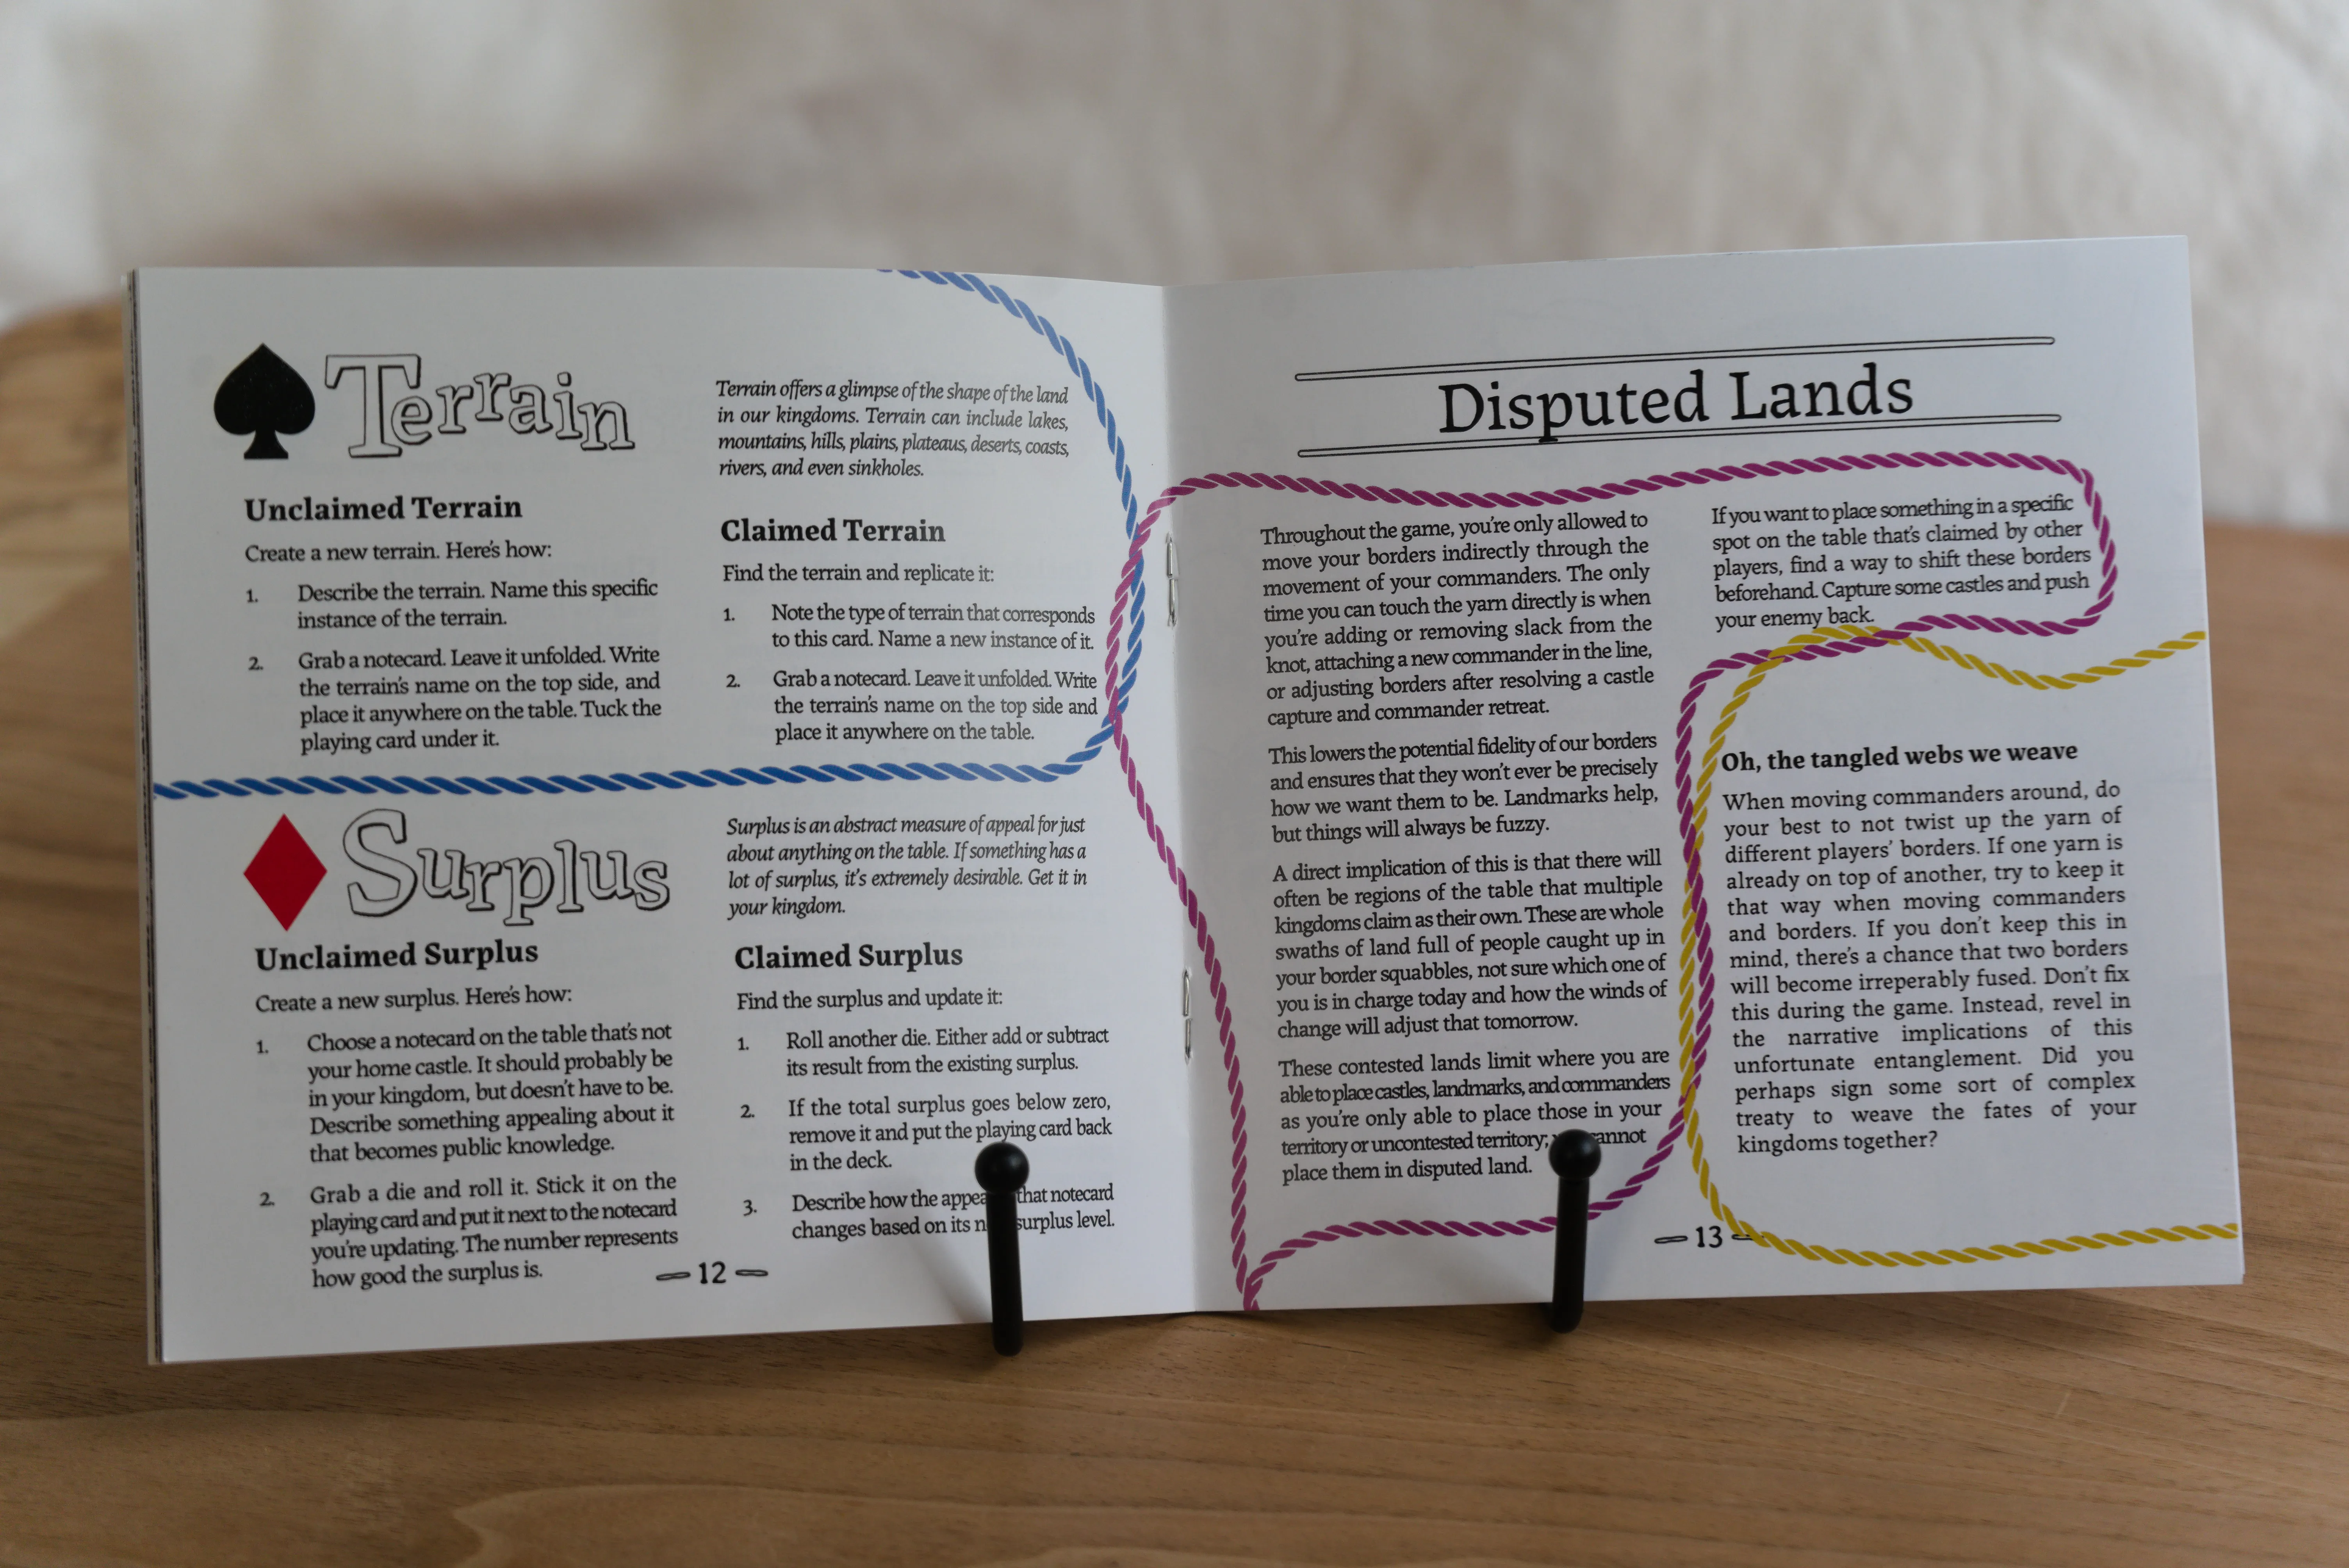 Terrain
Terrain offers a glimpse of the shape of the land
in our kingdoms. Terrain can include lakes,
mountains, hills, plains, plateaus, deserts, coasts,
rivers, and even sinkholes.
Unclaimed Terrain
Create a new terrain. Here's how:
1. Describe the terrain. Name this specific
instance of the terrain.
2. Grab a notecard. Leave it unfolded. Write
the terrain's name on the top side, and
place it anywhere on the table. Tuck the
playing card under it.
Claimed Terrain
Find the terrain and replicate it:
1. Note the type of terrain that corresponds
to this card. Name a new instance of it.
2. Grab a notecard. Leave it unfolded. Write
the terrain's name on the top side and
place it anywhere on the table.
Surplus
Surplus is an abstract measure of appeal for just
about anything on the table. If something has a
lot of surplus, it's extremely desirable. Get it in
your kingdom.
Unclaimed Surplus
Create a new surplus. Here's how:
1. Choose a notecard on the table that's not
your home castle. It should probably be
in your kingdom, but doesn't have to be.
Describe something appealing about it
that becomes public knowledge.
2. Grab a die and roll it. Stick it on the
playing card and put it next to the notecard
you're updating. The number represents
how good the surplus is.
Claimed Surplus
Find the surplus and update it:
1. Roll another die. Either add or subtract
its result from the existing surplus.
2. If the total surplus goes below zero,
remove it and put the playing card back
in the deck.
3. Describe how the that notecard
changes based on its surplus level.
12
Disputed Lands
Throughout the game, you're only allowed to
move your borders indirectly through the
movement of your commanders. The only
time you can touch the yarn directly is when
you're adding or removing slack from the
knot, attaching a new commander in the line,
or adjusting borders after resolving a castle
capture and commander retreat.
This lowers the potential fidelity of our borders
and ensures that they won't ever be precisely
how we want them to be. Landmarks help,
but things will always be fuzzy.
A direct implication of this is that there will
often be regions of the table that multiple
kingdoms claim as their own. These are whole
swaths of land full of people caught up in
your border squabbles, not sure which one of
you is in charge today and how the winds of
change will adjust that tomorrow.
These contested lands limit where you are
able to place castles, landmarks, and commanders
as you're only able to place those in your
territory or uncontested territory;
place them in disputed land.
If you want to place something in a specific
spot on the table that's claimed by other
players, find a way to shift these borders
beforehand. Capture some castles and push
your enemy back.
Oh, the tangled webs we weave
When moving commanders around, do
your best to not twist up the yarn of
different players' borders. If one yarn is
already on top of another, try to keep it
that way when moving commanders
and borders. If you don't keep this in
mind, there's a chance that two borders
will become irreperably fused. Don't fix
this during the game. Instead, revel in
the narrative implications of this
unfortunate entanglement. Did you
perhaps sign some sort of complex
treaty to weave the fates of your
kingdoms together?
13